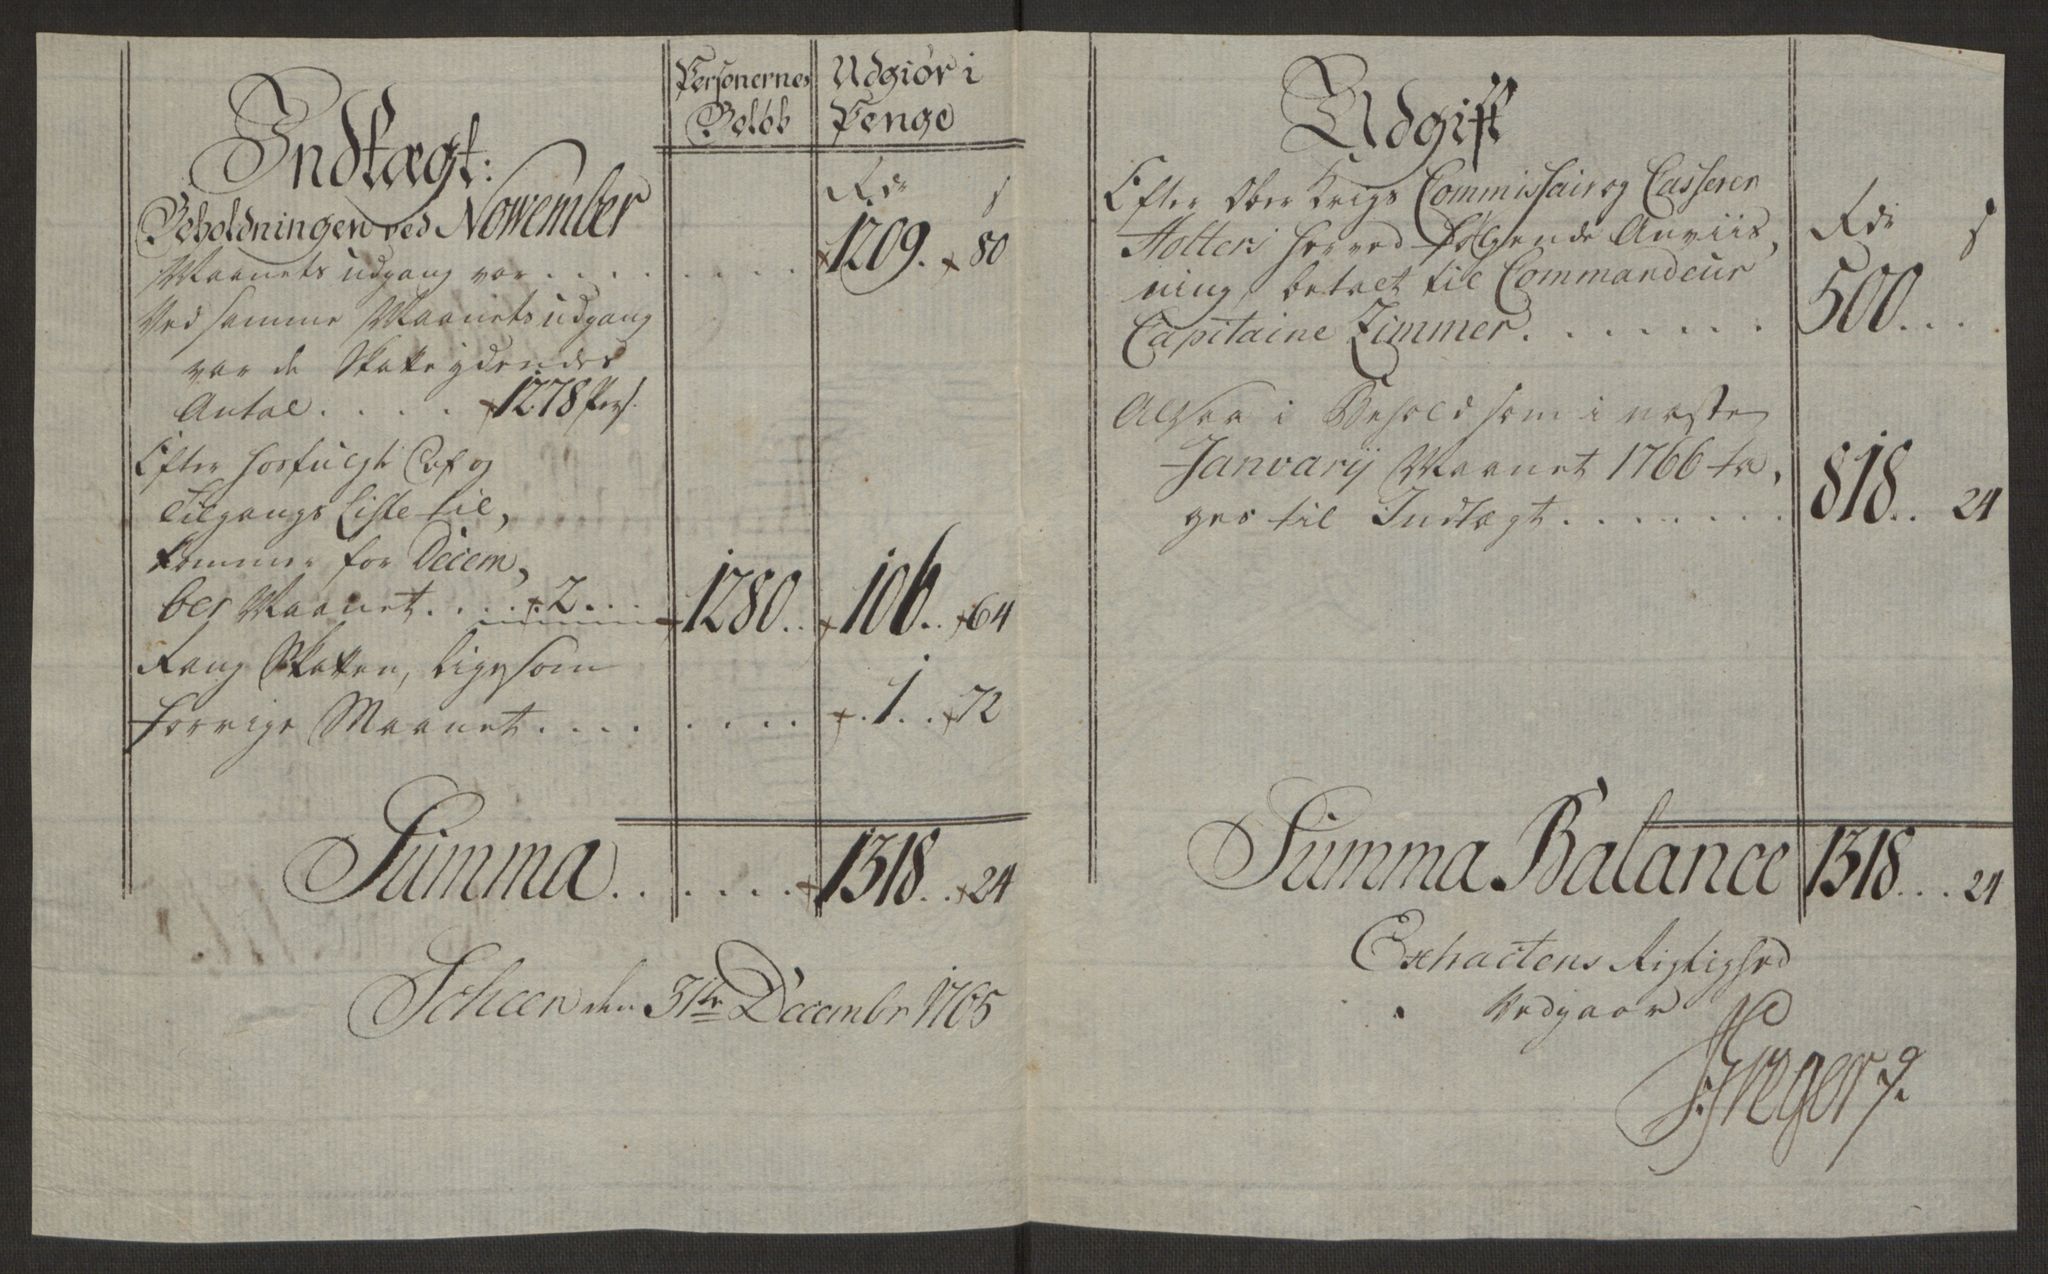 Indtægt:
Personernes
Beløb
Udgiør i
Penge
Rdr s
Beholdningen ved November
Maanets udgang var . . . . . . . . 1209. 80
Ved samme Maanets udgang
var de Skatteydendes
Antal . . . . 1278 Pers.
Efter hosfulgte Af og
Tilgangs Liste til,
kommer for Decem,
ber Maanet . . . . 2 . . . 1280. . 106. . 64
Rang Skatten, ligesom
forrige Maanet . . . . . . . . 1. . 72
Summa . . . . . . 1318. . 24
Scheen den 31te Decembr 1765
Udgift
Rdr s
Efter Ober Krigs Commissair og Casserer
Holters herved følgende Anviis,
ning, betalt til Commandeur
Capitaine Zimmer . . . . . . 500. . .
Altsaa i Behold som i næste
Janvarij Maanet 1766 ta,
ges til Indtægt . . . . . . . 818. . 24
Summa Balance 1318. . . 24
Extractens Rigtighed
Vedgaar